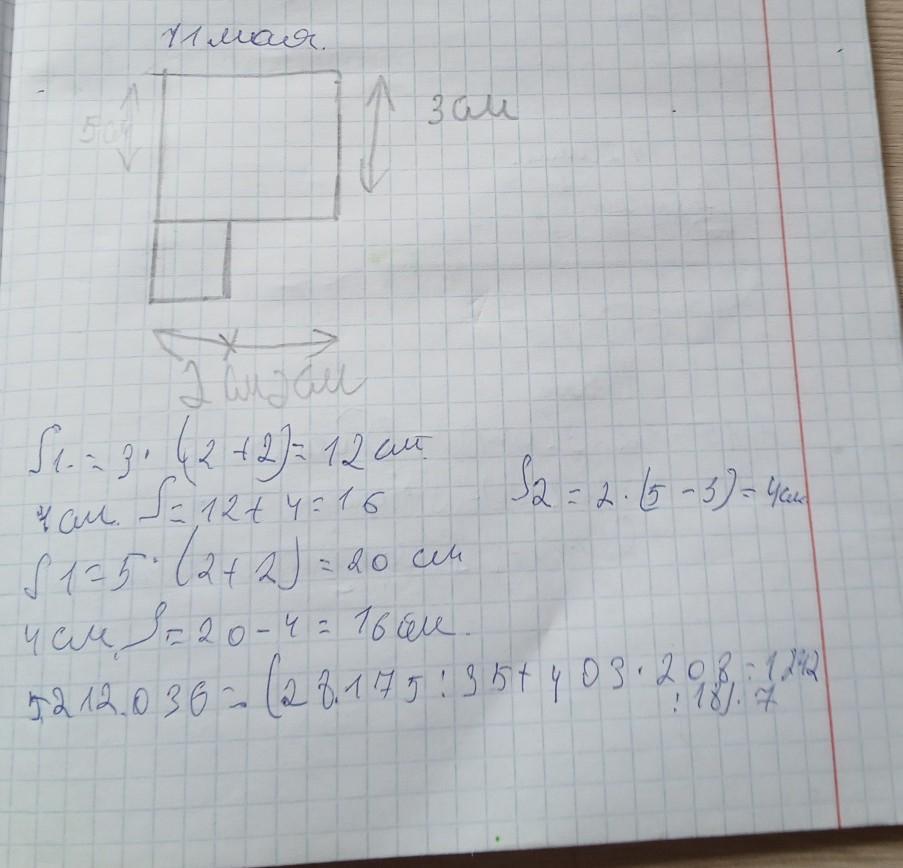 11 мая.
5 см
3 см
2 см 2 см
S1. = 3 · (2 + 2) = 12 см.
S2 = 2 · (5 - 3) = 4 см
4 см. S = 12 + 4 = 16
S1 = 5 · (2 + 2) = 20 см
4 см, S = 20 - 4 = 16 см.
5.212.036 = (28.175 : 35 + 403 · 208 - 1242
: 18) · 7